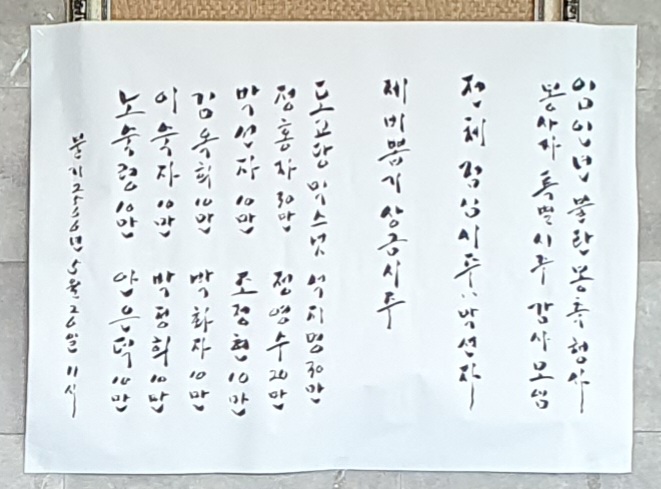 임인년 불탄봉축행사
봉사자 특별시주 감사모임
전체 점심시주 : 박선자
제비뽑기 상금시주
포교당 믹스넛 석지명 30만
정홍자 30만 정영수 20만
박선자 10만 조정현 10만
김옥희 10만 박화자 10만
이숙자 10만 박정희 10만
노숙령 10만 안은덕 10만
불기 2566년 5월 26일 11시